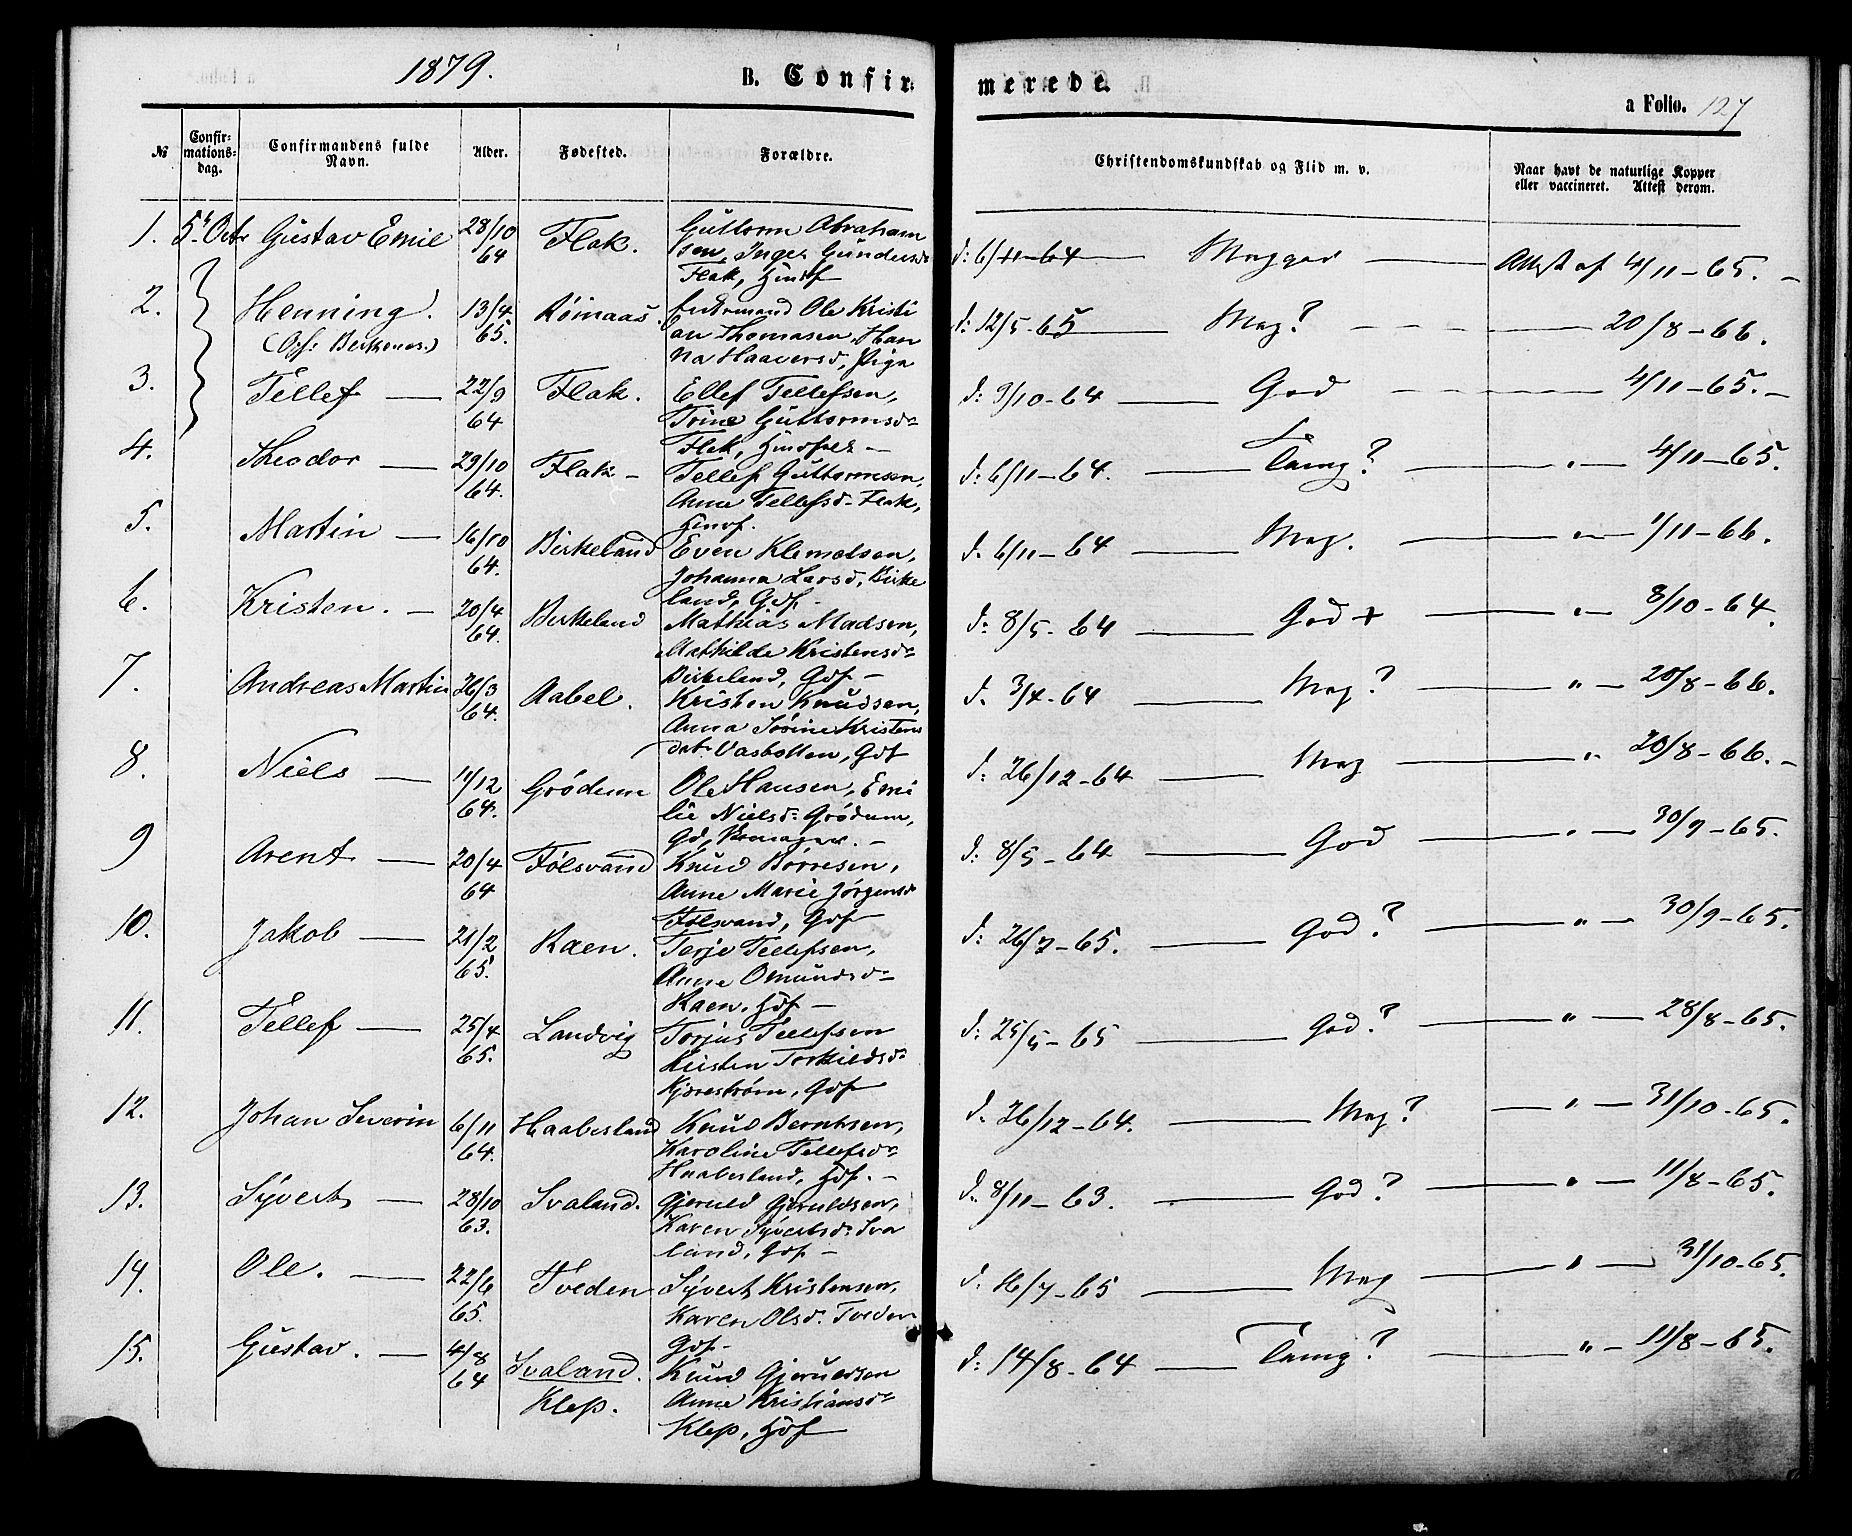 1879.
B. Confirmerede.
a Folio. 127
№ Confirmationsdag. Confirmandens fulde Navn. Alder. Fødested. Forældre. Christendomskundskab og Flid m. v. Naar havt de naturlige Kopper eller vaccineret. Attest derom.
1. 5t Octr Gustav Emil 28/10 64 Flak. Guttorm Abraham
sen, Inger Gundersd:
Flak, d: 6/11-64 Attest af 4/11-65.
2. Henning. 13/4 65. Røinaas. Ole Kristi
(Opf: Birkenes.) an Thomasen, Han
na Haaversd, Pige d: 12/5-65 Mag? 20/8-66.
3. Tellef 22/9 64 Flak. Ellef Tellefsen,
Trine Guttormsd:
Flak, d: 9/10-64 God 4/11-65.
4. Theodor 29/10 64. Flak Tellef Guttormsen,
Anne Tellefsd: Flak,
d: 6/11-64. Taalg? " 4/11-65.
5. Martin 16/10 64. Birkeland Even Klemetsen,
Johanna Larsd, Birke
land, Gdf. d: 6/11-64 Mag. " 1/11-66.
6. Kristen. 20/4 64. Birkeland Mathias Madsen,
Mathilde Kristensd:
Birkeland, Gdf d: 8/5-64 God+ " 8/10-64.
7. Andreas Martin 26/3 64. Aabel. Kristen Knudsen,
Anna Sørine Kristens
dat: Vasbotten, Gdf d: 3/4-64 Mag? " 20/8-66.
8. Niels 11/12 64. Grødum Ole Hansen, Emi
lie Nielsd: Grødum,
d: 26/12-64 Mag " 20/8-66.
9 Arent 20/4 64 Følsvand Knud Børresen,
Anne Marie Jørgensd:
Følsvand, Gdf d: 8/5-64 God " 30/9-65.
10. Jakob 21/2 65. Raen. Terje Tellefsen,
Anne Omundsd:
Raen, Hdf d: 26/7-65. God? " 30/9-65.
11. Tellef 25/4 65. Landvig Torjus Tellefsen
Kirsten Torkildsd:
Kjørestrøm, Gdf d: 25/5-65 God? " 28/8-65.
12. Johan Severin 6/11 64. Haabesland Knud Berntsen,
Karoline Tellefsd:
Haabesland, Hdf. d: 26/12-64. Mag? " 31/10-65.
13. Syvert 28/10 63. Svaland. Gjeruld Gjeruldsen,
Karen Syvertsd: Sva
land, Gdf d: 8/11-63. God? " 11/8-65.
14. Ole. 22/6 65. Tveden Syvert Kristensen,
Karen Olsd: Tveden
Gdf d: 16/7-65 Mag " 31/10-65.
15. Gustav. 4/8 64 Svaland. Knud Gjeruldsen
Klep. Anne Kristiansd:
Klep, Hdf d: 14/8-64 Taalg? " 11/8-65.